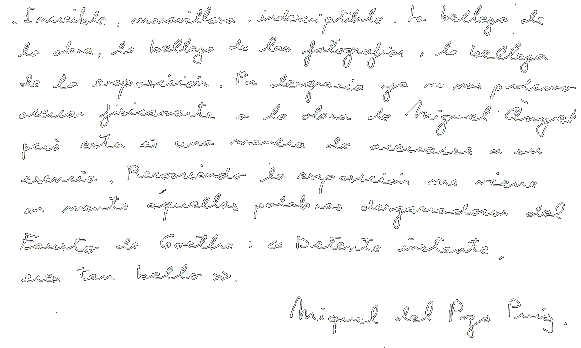 Increíble, maravilloso, indescriptible. La belleza de
la obra, la belleza de las fotografías, la belleza
de la exposición. Por desgracia ya no nos podemos
acercar físicamente a la obra de Miguel Ángel
pero esta es una manera de acercarse a su
esencia. Recorriendo la exposición me viene
a la mente aquellas palabras desgarradoras del
Fausto de Goethe: « Detente instante,
eres tan bello ».
Miguel del Pozo Puig.